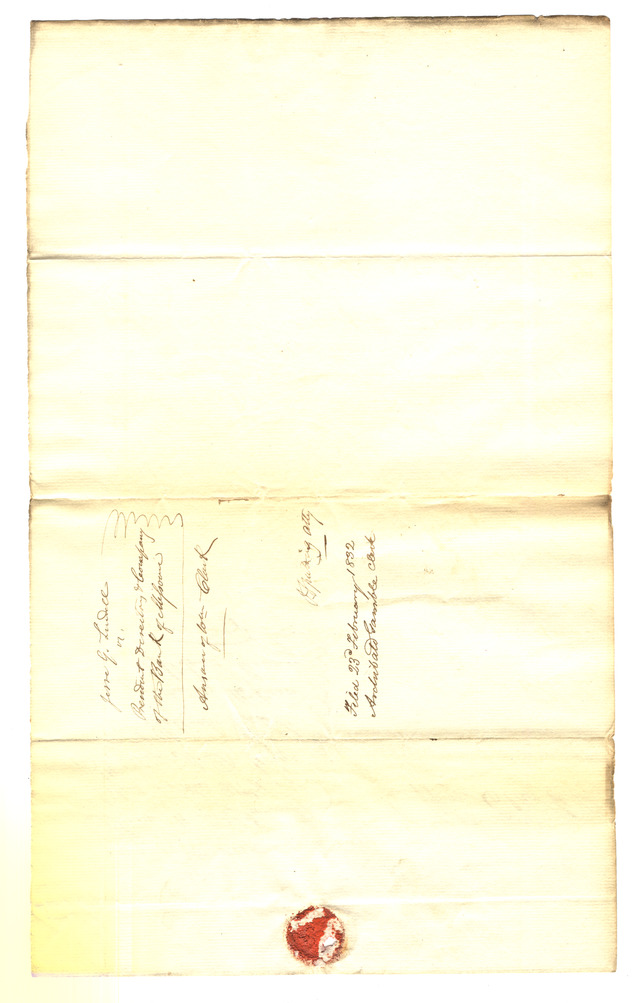 Jesse G. Lindell
vs.
President Directors & Company
of the Bank of Missouri
Answer of Clerk
Spalding atty
Filed 23d February 1832
Archibald Gamble clerk